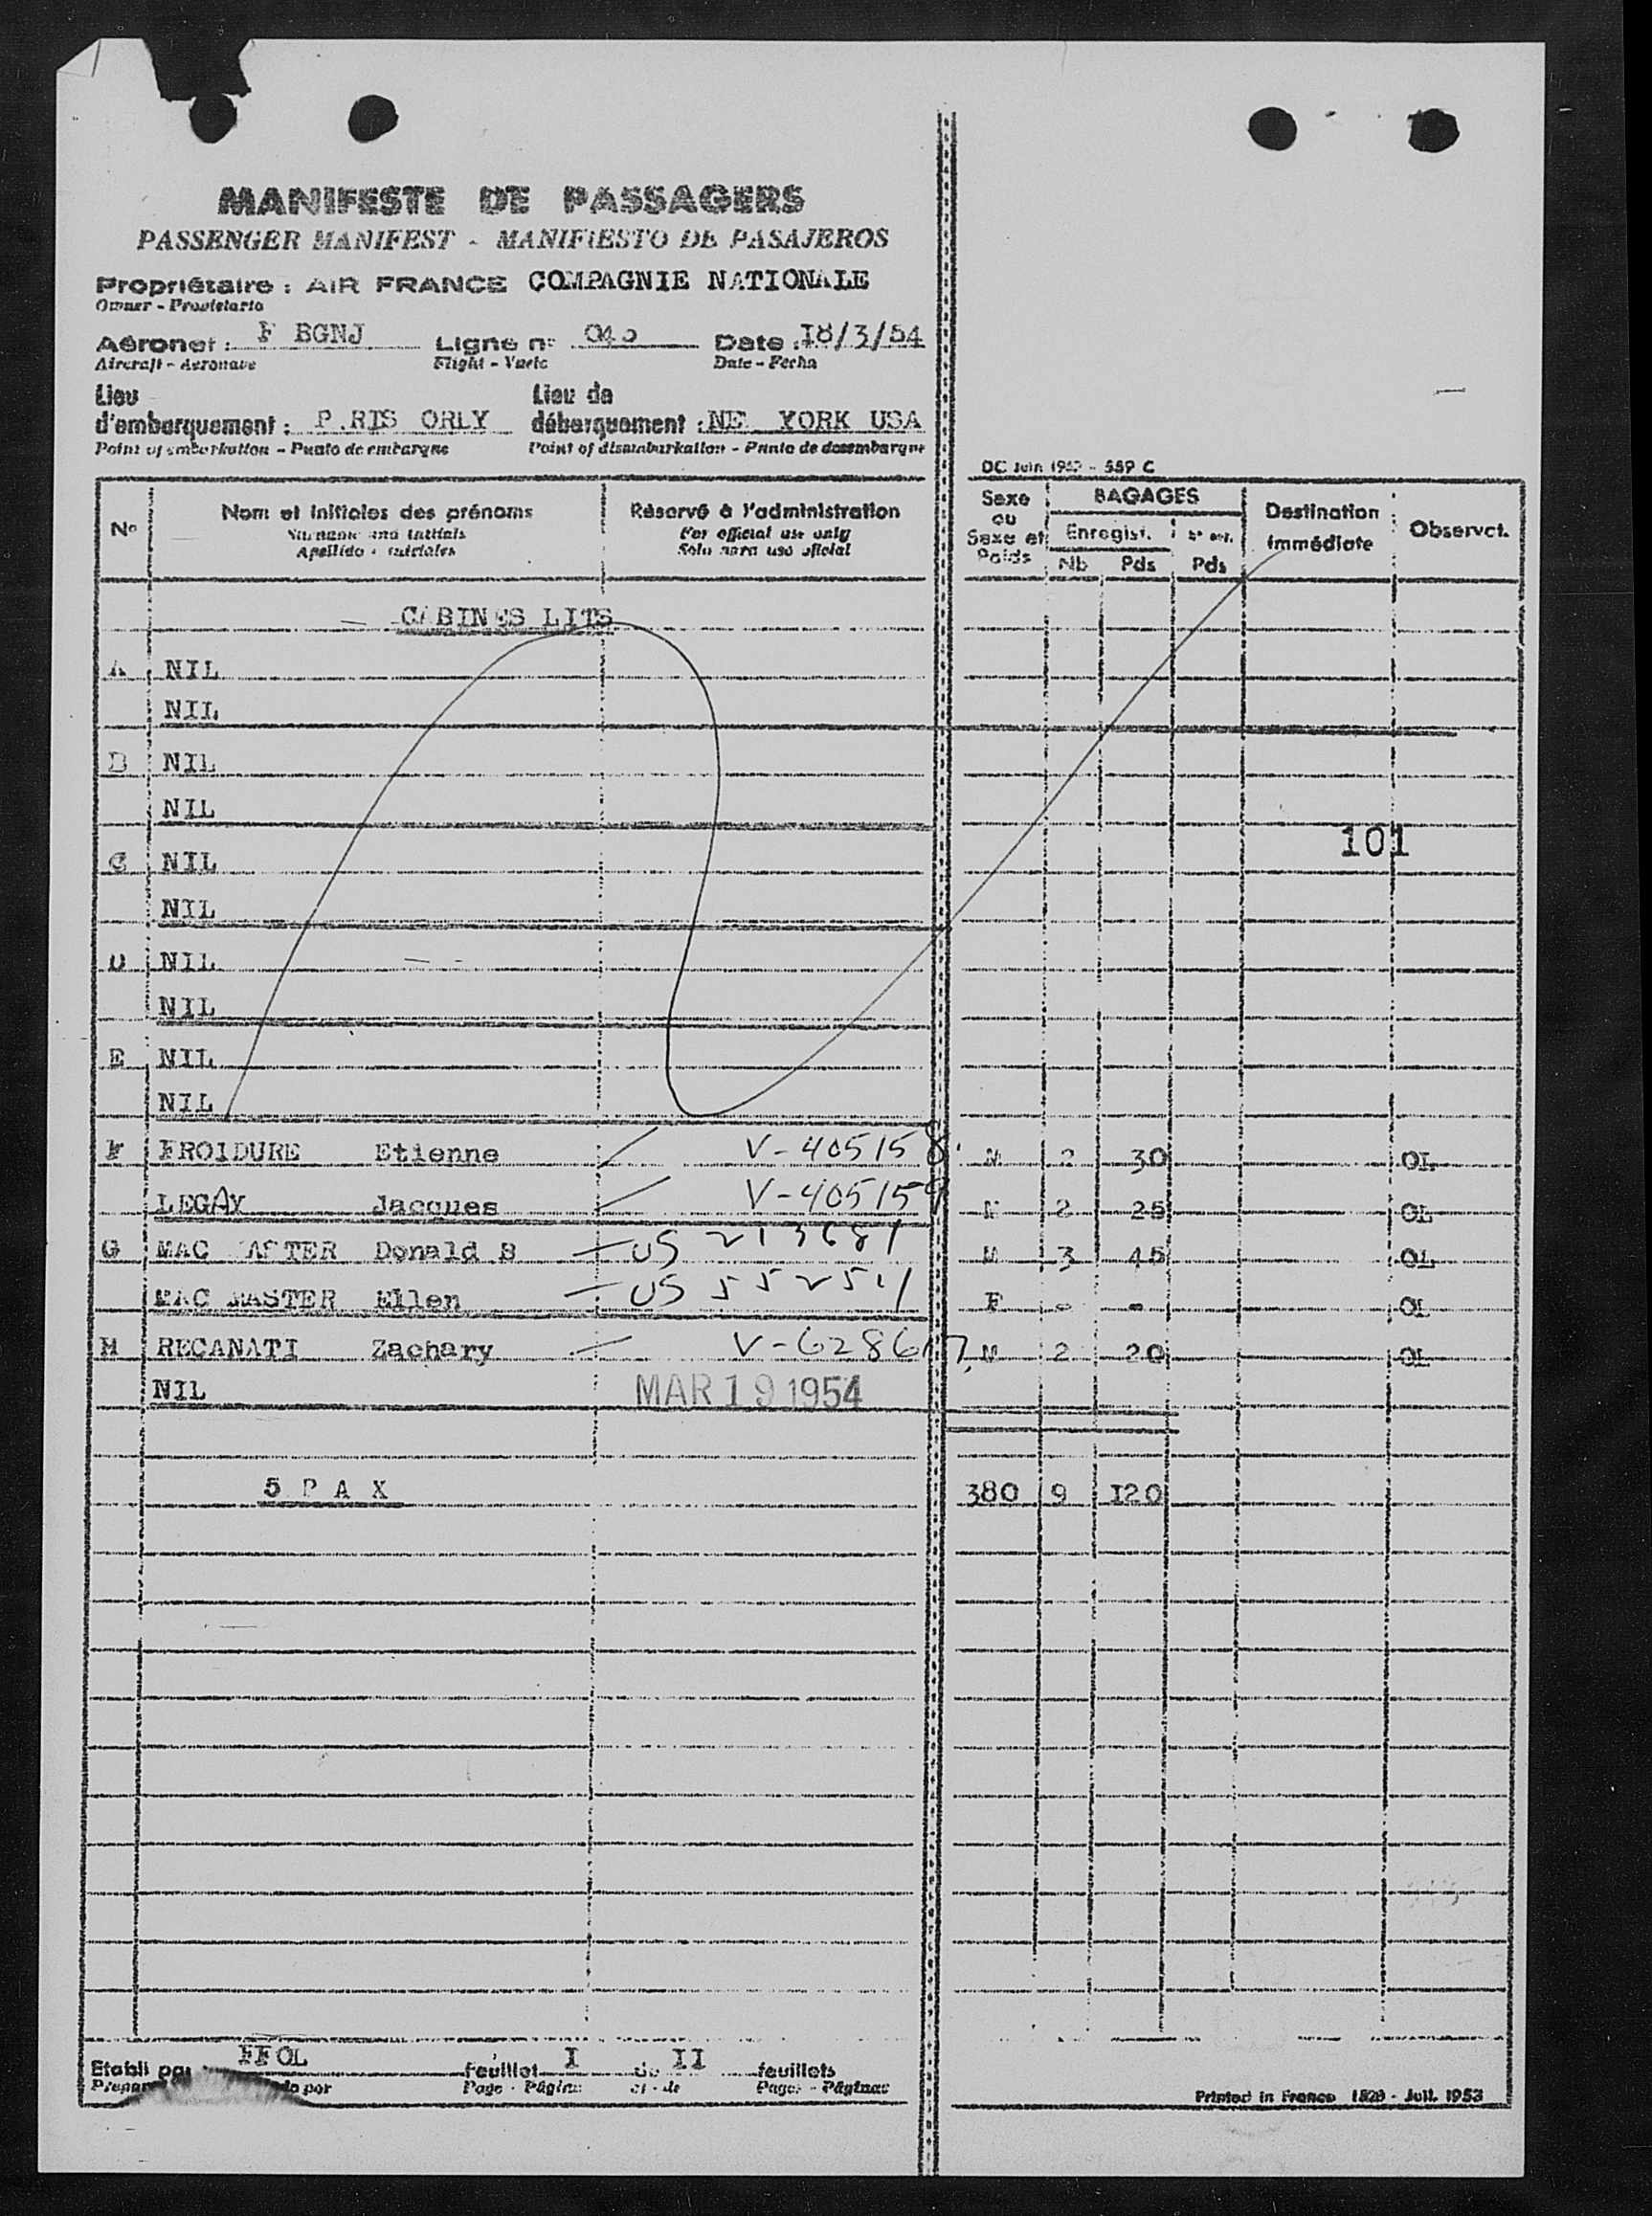 MANIFESTE DE PASSAGERS
PASSENGER MANIFEST - MANIFIESTO DE PASAJEROS
Propriétaire : AIR FRANCE COMPAGNIE NATIONALE
Owner - Propietario
Aéronef : F BGNJ Ligne n° Date : I8/3/54
Aircraft - Aeronave Flight - Date - Fecha
Lieu Lieu de
d'embarquement : P.RIS ORLY débarquement : NE YORK USA
Point of embarkation - Punto de embarque Point of disembarkation - Punto de desembarque
DC Juin 1952 - 559 C
N° Nom et initiales des prénoms Réservé à l'administration Sexe ou Sexe et Poids BAGAGES Destination immédiate Observat.
Surname and initials For official use only Enregist.
Apellido e iniciales Solo para uso oficial Nb Pds Pds
CABINES LITS
A NIL
NIL
B NIL
NIL
101
C NIL
NIL
D NIL
NIL
E NIL
NIL
F FROIDURE Etienne V-405158 M 2 30 OL
LEGAY Jacques V-405159 M 2 25 OL
G MAC ASTER Donald B US 213681 M 3 45 OL
MAC MASTER Ellen US F - - OL
H RECANATI Zachary M 2 20 OL
NIL MAR 19 1954
5 P A X 380 9 I20
Etabli par FFOL Feuillet I de II feuillets
Page - Página of - de Pages - Páginas
Printed in France 1528 - Juil. 1953